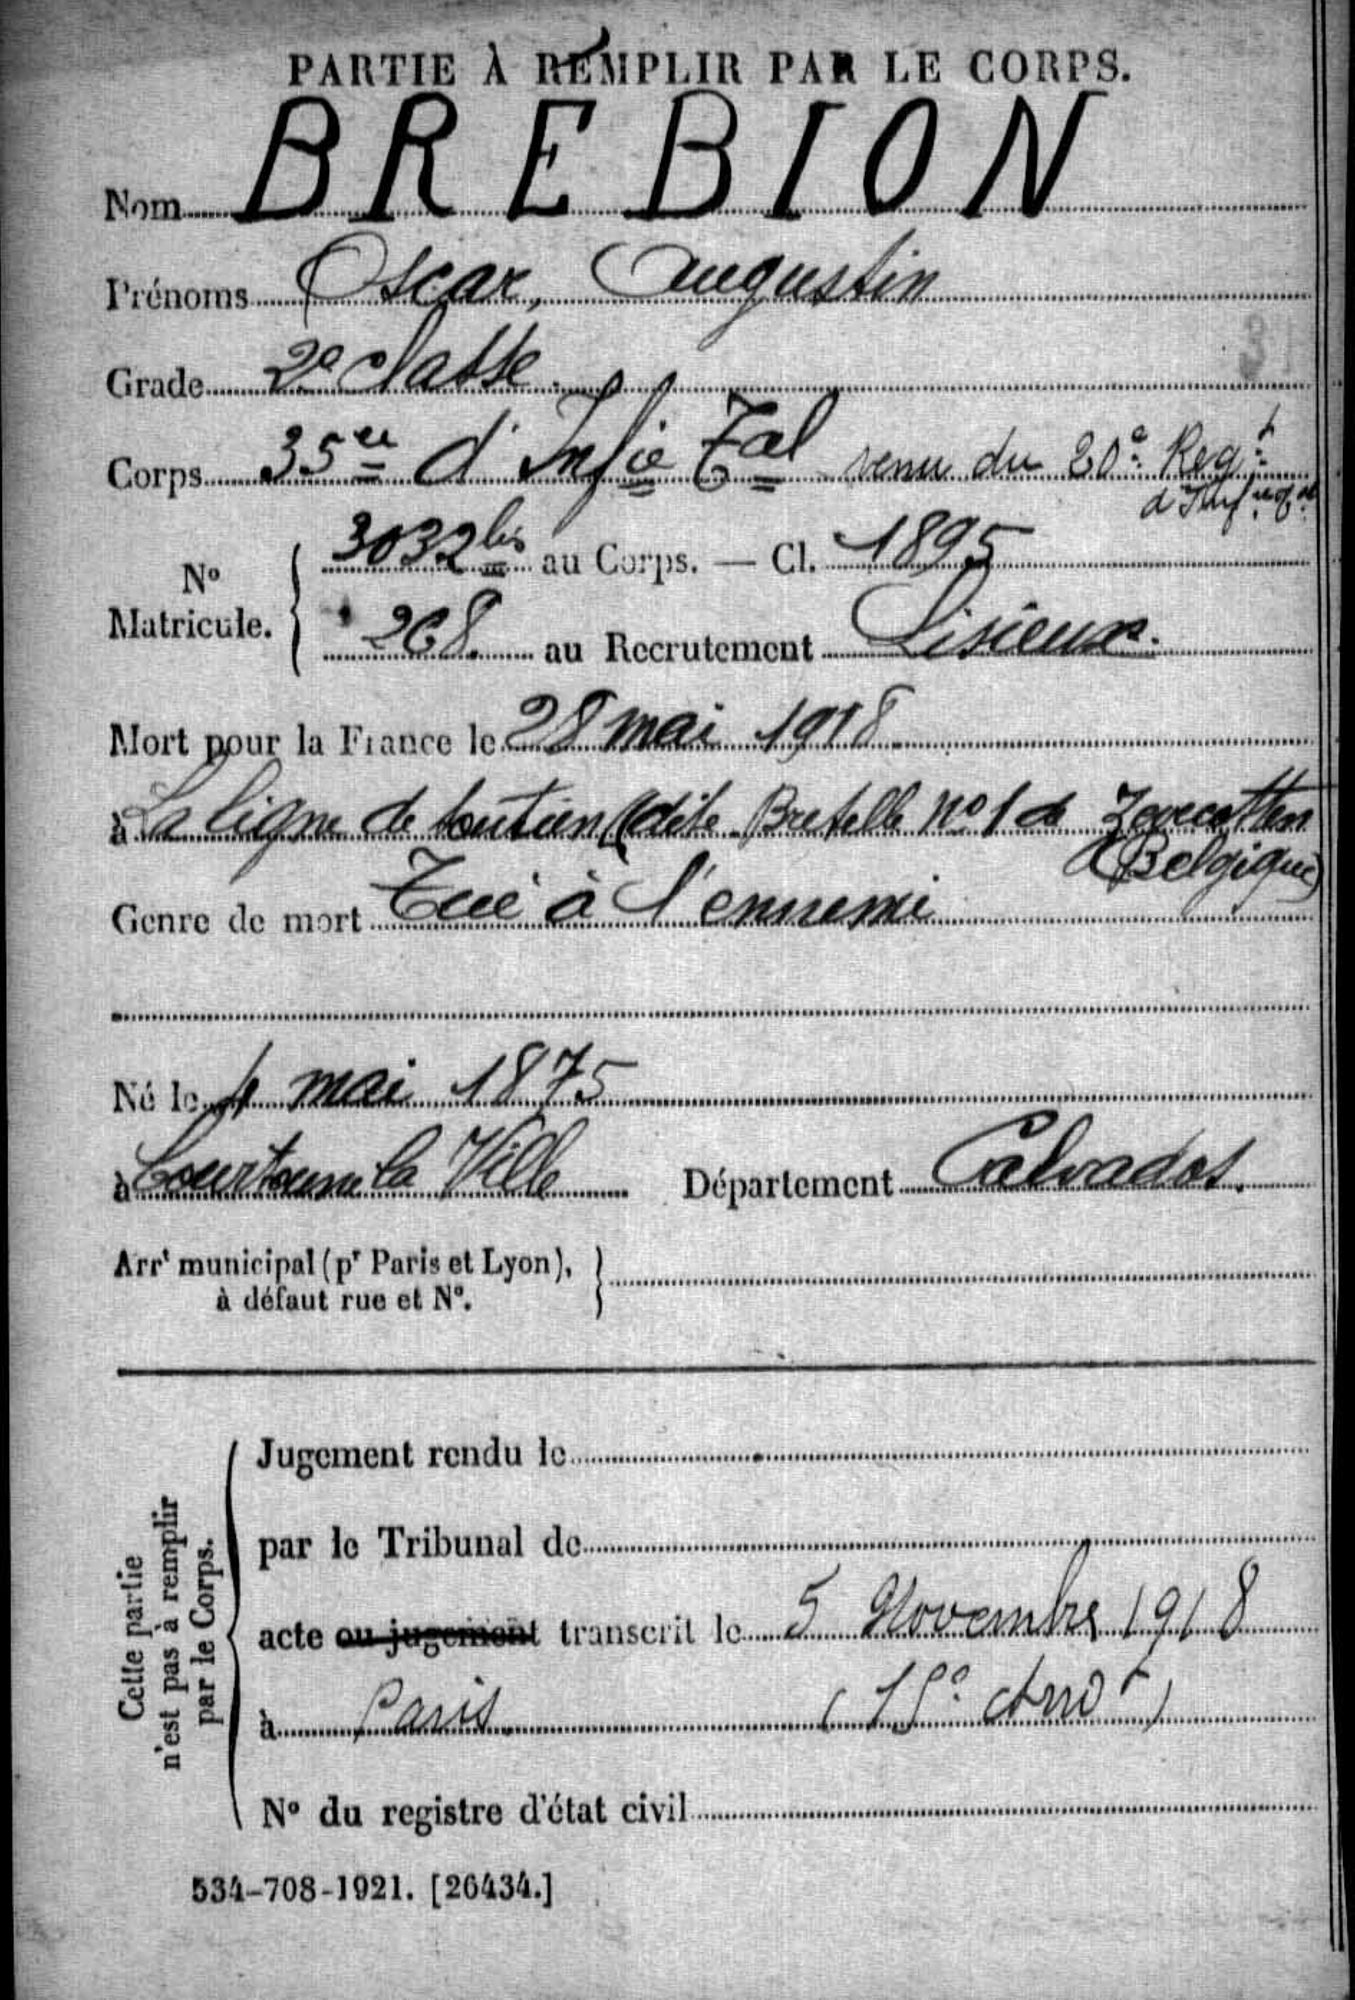 PARTIE À REMPLIR PAR LE CORPS.
Nom BRÉBION
Prénoms Oscar, Augustin
Grade 2e classe
Corps 35ee d'Infie Tal venu du 20e Regt
d'Infie Tale
No Matricule. 3032 bis au Corps. — Cl. 1895
268. au Recrutement Lisieux.
Mort pour la France le 28 mai 1918
à La ligne de soutien (dite Bretelle no 1 de Zevecotten
(Belgique)
Genre de mort Tué à l'ennemi
Né le 4 mai 1875
à Courtonne la Ville Département Calvados.
Arrt municipal (pr Paris et Lyon),
à défaut rue et No.
Cette partie
n'est pas à remplir
par le Corps.
Jugement rendu le
par le Tribunal de
acte ou jugement transcrit le 5 Novembre 1918
à Paris (15e Arrdt)
No du registre d'état civil
534-708-1921. [26434.]